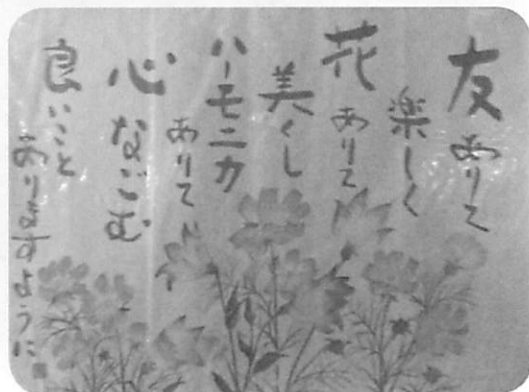 友ありて
楽しく
花ありて
美くし
ハーモニカ
ありて
心なごむ
良いこと
ありますように